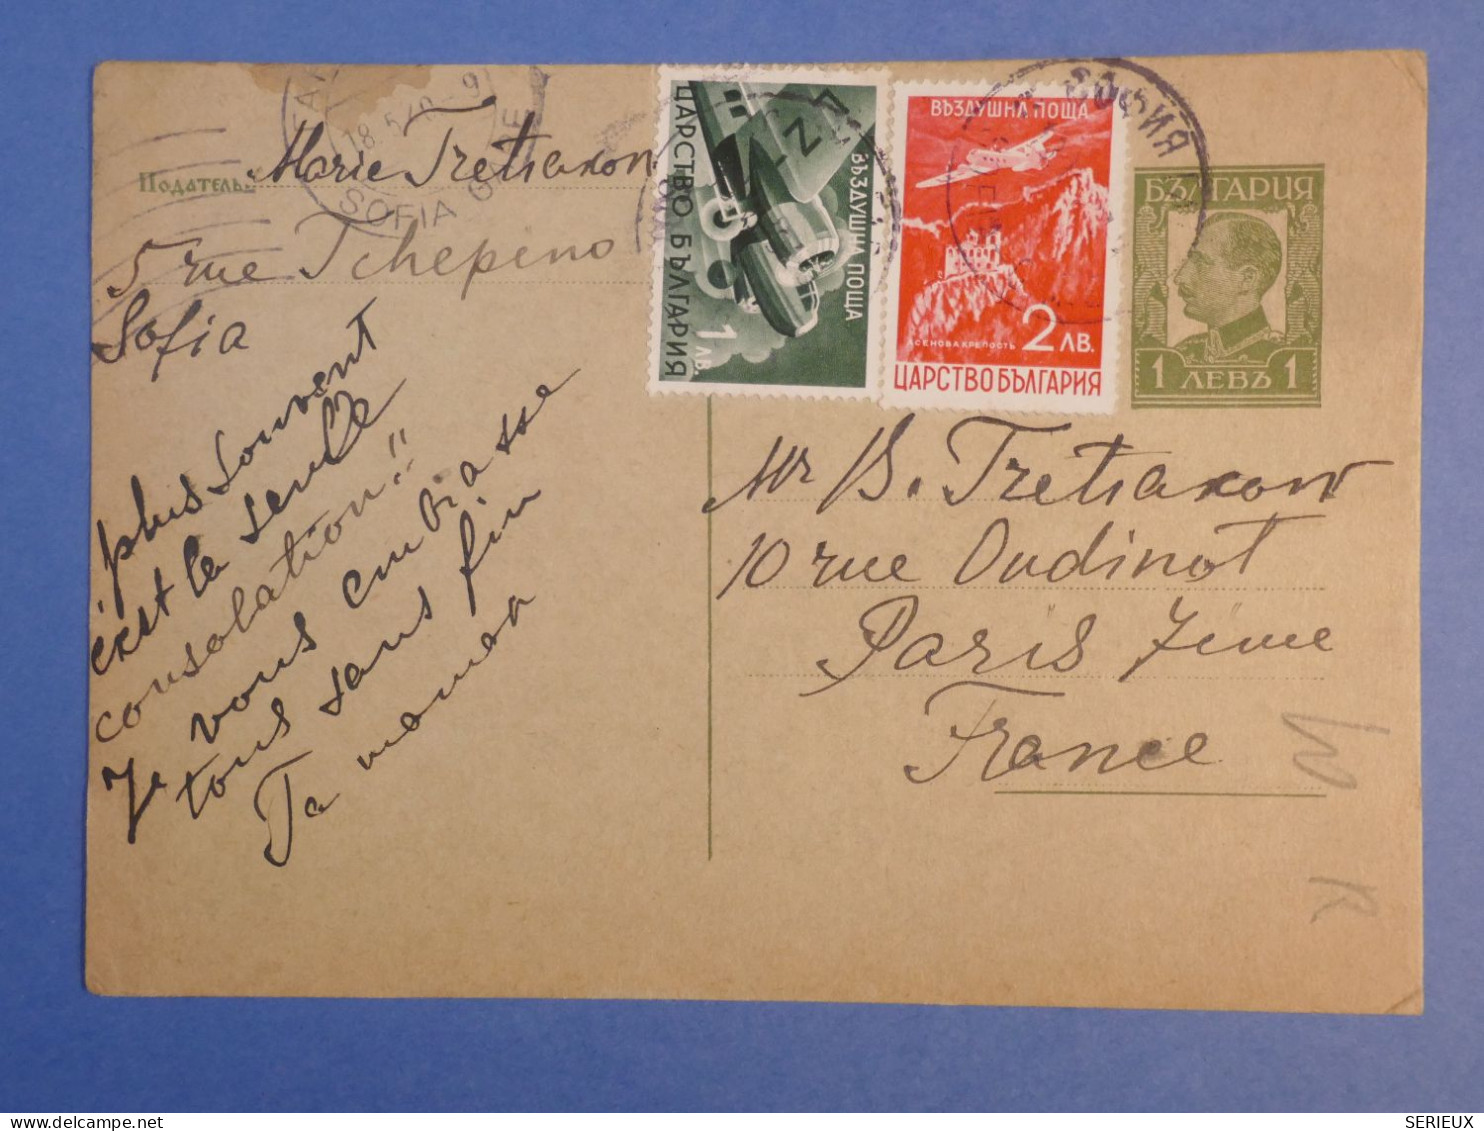 18.5.40-9
SOFIA GARE
Подателъ
Marie Tretiakow
5 rue Tchepino
Sofia
plus souvent
c'est la seule
consolation!"
Je vous embrasse
tous sans fin
Ta maman
ЦАРСТВО БЪЛГАРИЯ
ВЪЗДУШНА ПОЩА
1 ЛВ.
ВЪЗДУШНА ПОЩА
АСЕНОВА КРЕПОСТЬ
2 ЛВ.
ЦАРСТВО БЪЛГАРИЯ
СОФИЯ
БЪЛГАРИЯ
1 ЛЕВЪ 1
Mr B. Tretiakow
10 rue Oudinot
Paris 7ème
France
R
SERIEUX